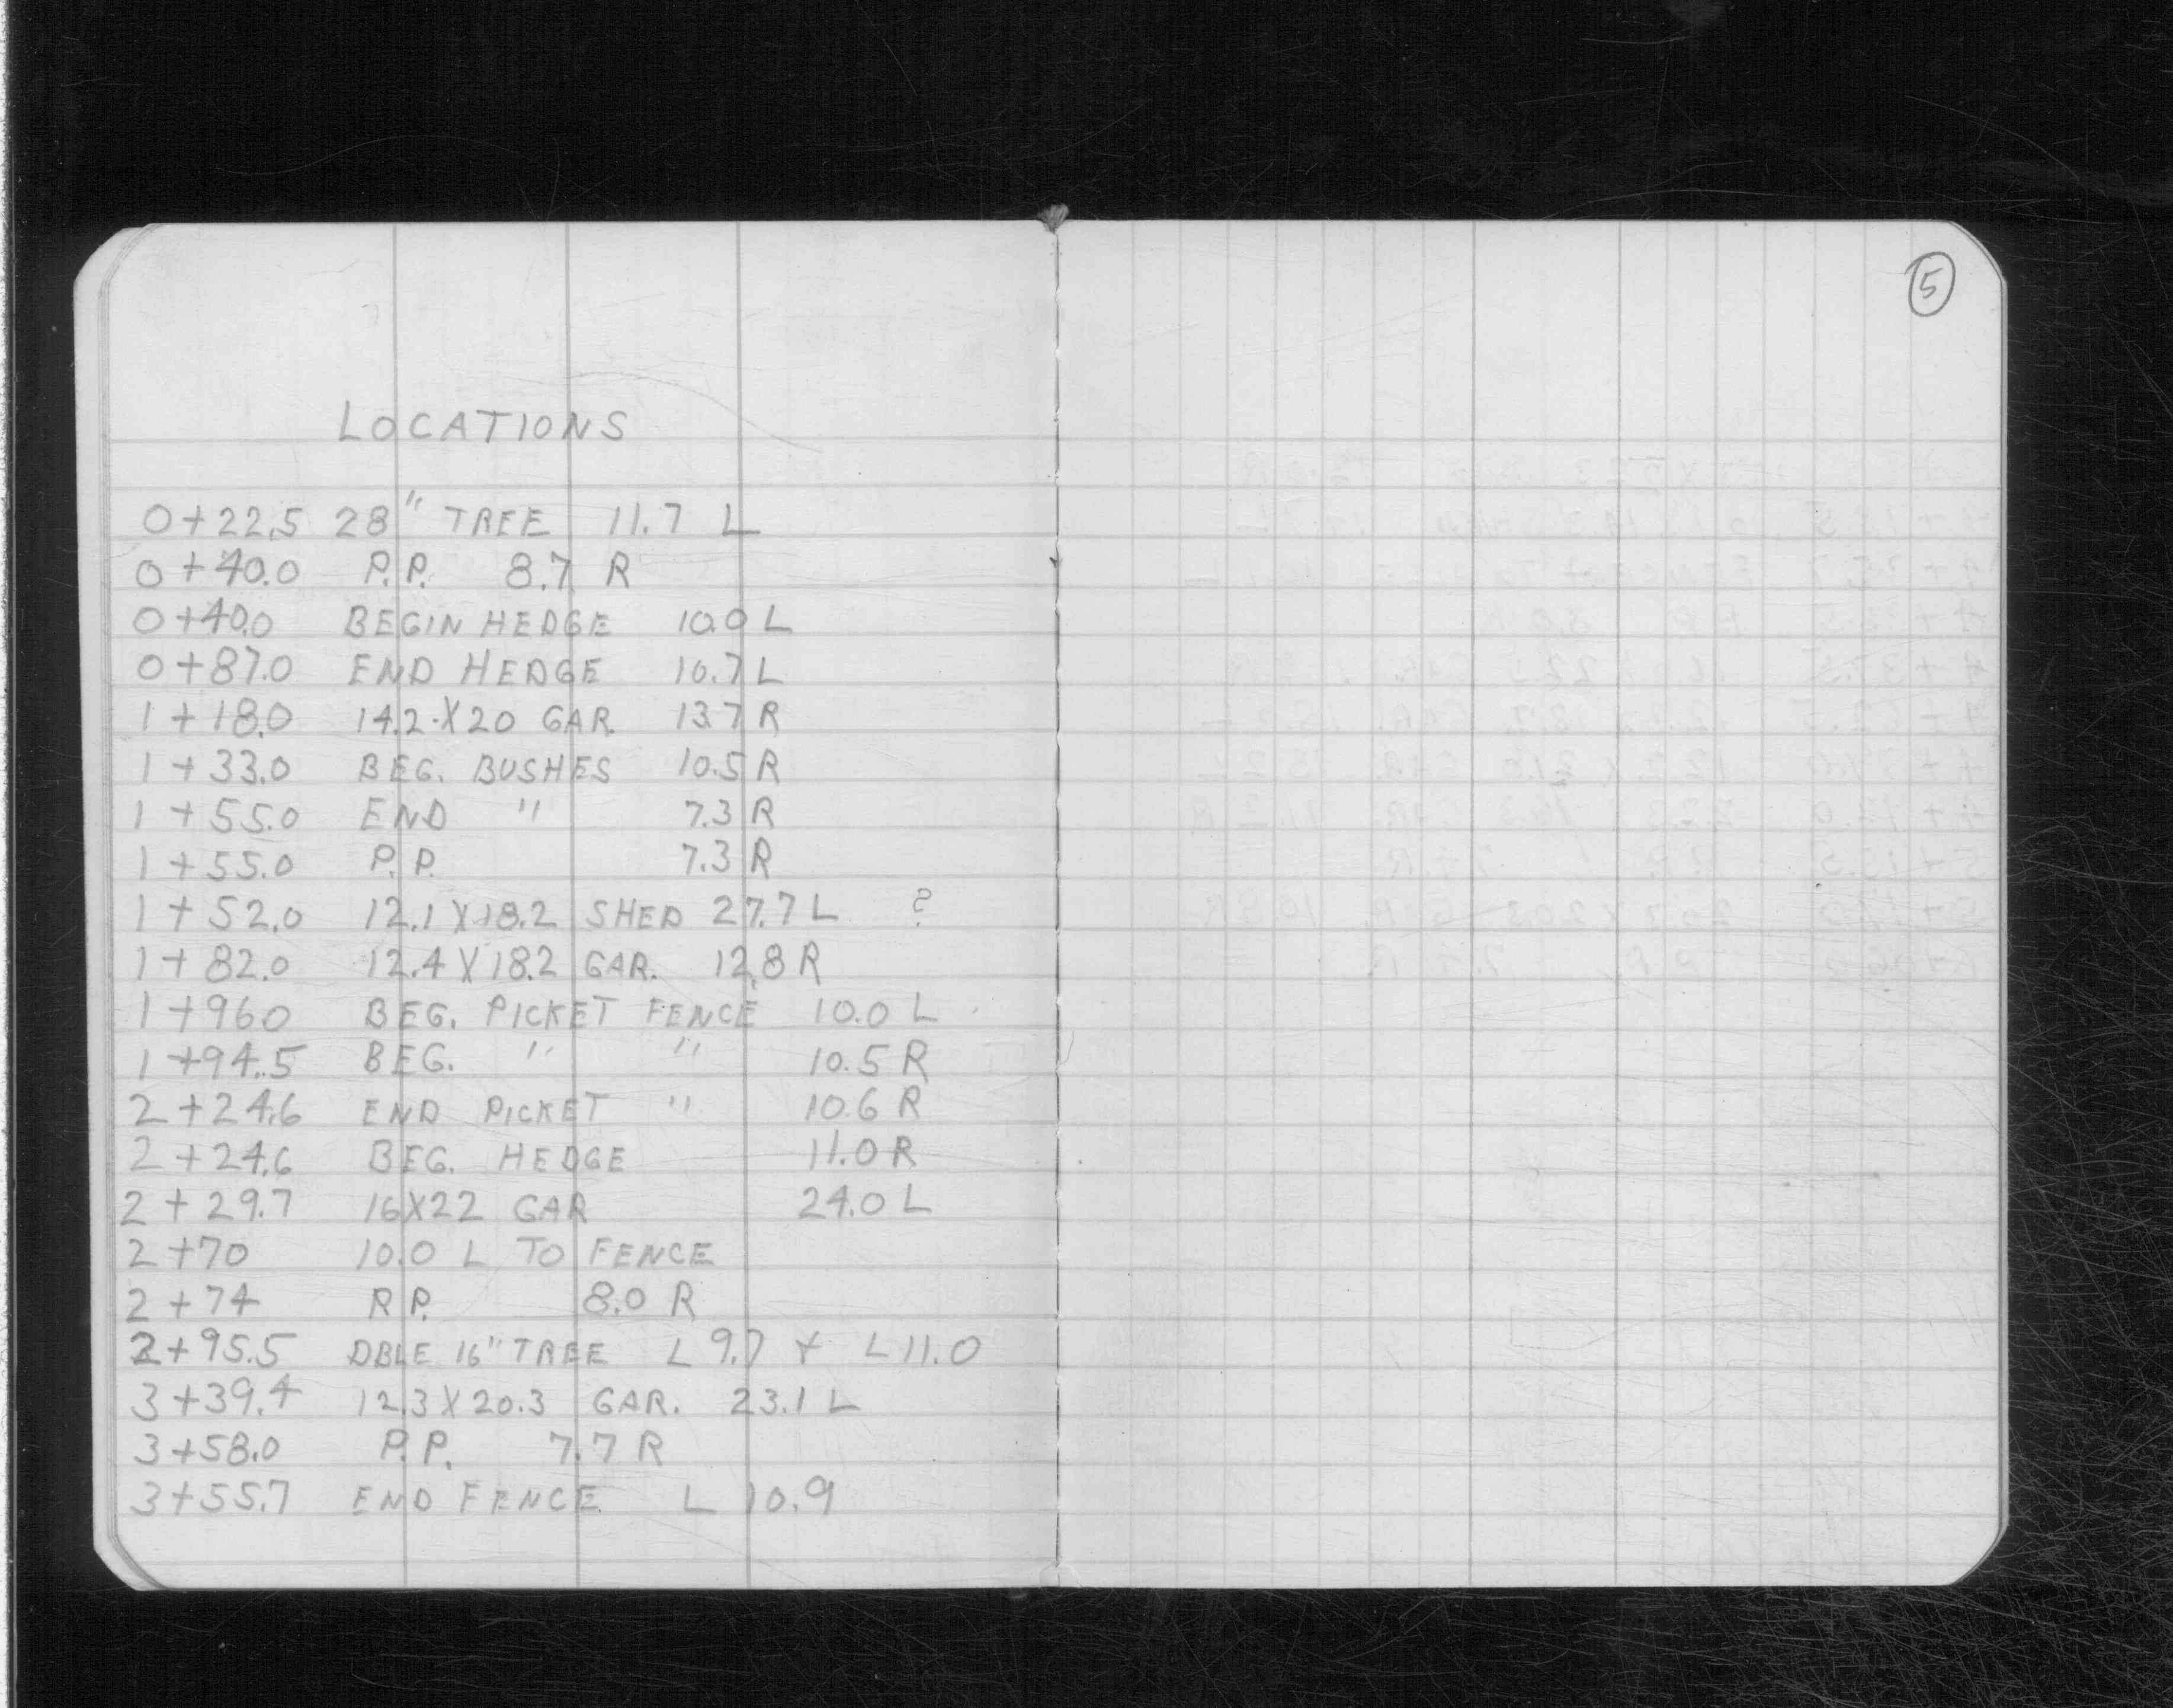 LOCATIONS
0+22.5 28" TREE 11.7 L
0+40.0 P.P. 8.7 R
0+40.0 BEGIN HEDGE 10.0 L
0+87.0 END HEDGE 10.7 L
1+18.0 14.2 X 20 GAR. 13.7 R
1+33.0 BEG. BUSHES 10.5 R
1+55.0 END " 7.3 R
1+55.0 P.P. 7.3 R
1+52.0 12.1 X 18.2 SHED 27.7 L ?
1+82.0 12.4 X 18.2 GAR. 12.8 R
1+96.0 BEG. PICKET FENCE 10.0 L
1+94.5 BEG. " " 10.5 R
2+24.6 END PICKET " 10.6 R
2+24.6 BEG. HEDGE 11.0 R
2+29.7 16X22 GAR 24.0 L
2+70 10.0 L TO FENCE
2+74 P.P. 8.0 R
2+95.5 DBLE 16" TREE L 9.7 & L 11.0
3+39.4 12.3 X 20.3 GAR. 23.1 L
3+58.0 P.P. 7.7 R
3+55.7 END FENCE L 10.9
5